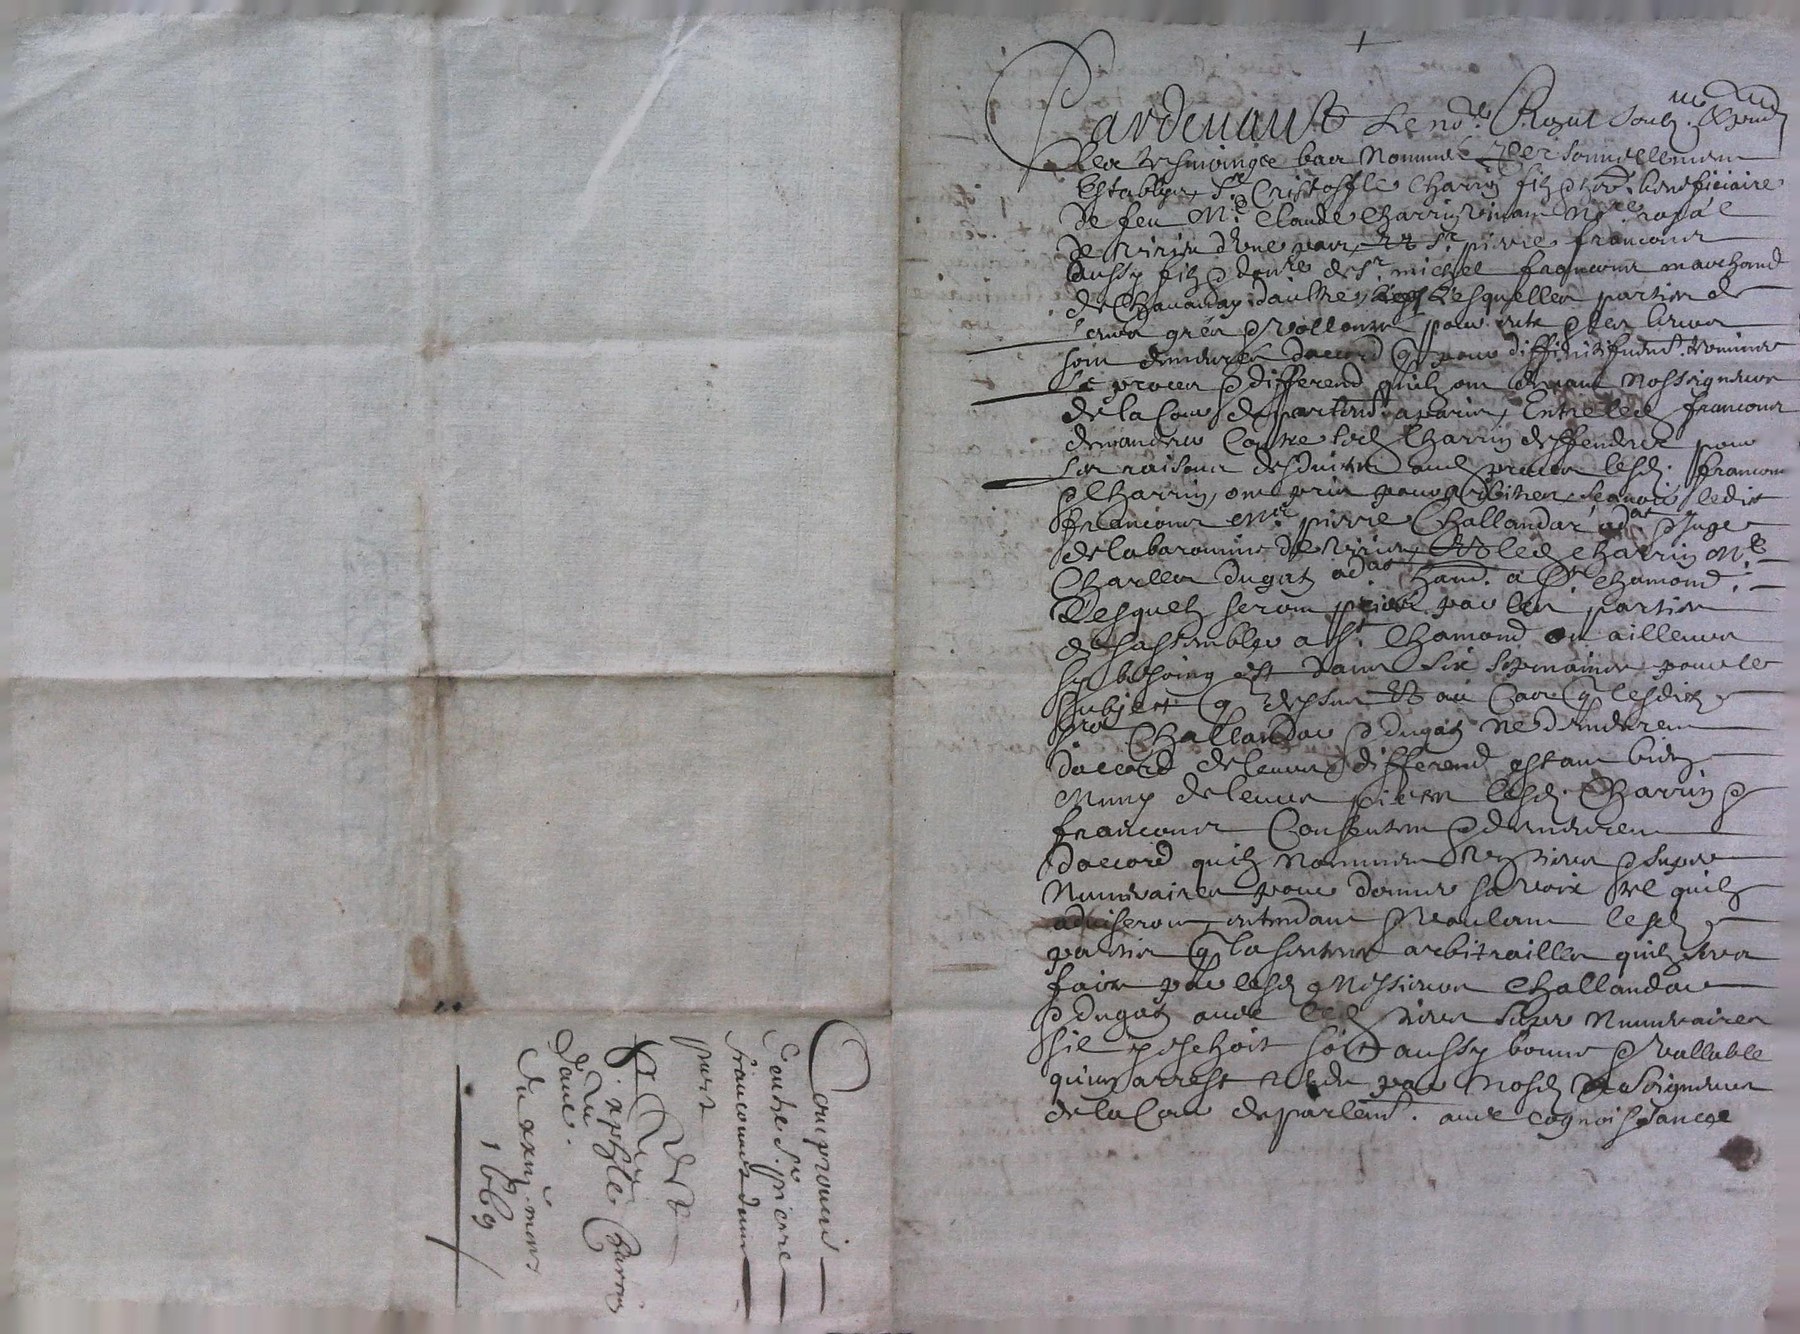 Pardevant Le no.re Royal soubz.né &
les tesmoingz bas nommés personnellement
Establys, Sr Cristofle Charrin filz & hérr. beneficiaire
de feu Me Claude Charrin vivant no.re royal
de Virieu d'une part, Et Sr pierre francour
aussy filz & donre de Sr michel francour marchand
de Chavanay d'aultre, Lesquelles parties de
leurs grés & vollontés pour eulx & les leurs
sont demeurés d'accord que pour diffinitifvemt. terminer
le proces & differend quilz ont devant Nosseigneurs
de la Cour de parlemt. a paris, Entre led. francour
demandeur Contre led. Charrin deffendeur pour
les raisons desduites aud. proces lesd. francour
& Charrin, ont pris pour arbitres, scavoir ledit
francour Me pierre Challandar adat & Juge
de la baronnie de Virieu, Et led. charrin Me
Charles dugas adat a St chamond.
Lesquelz seront priés par les parties
de sassembler a St Chamond ou ailleurs
sy besoing est dans six sepmaines pour le
subject q dessus Et au Cas q lesditz
srs Challandar & dugas ne demeurent
d'accord de leurs differend estant bien
muny de leurs pieces lesd. Charrin &
francour Consentent & demeurent
d'accord quilz nomment un tiers & super
numeraires pour donner sa voix tel quilz
adviseront, entendant & voulant lesd.
parties q la sentence arbitrailles quilz sera
faite par lesd. Messieurs Challandar
& dugas avec led. tiers super numeraires
sil y eschoit soit aussy bonne & vallable
quun arrest rendu par nosd. seigneurs
de la Cour de parlemt. avec cognoissance
Compromis
Entre Sr. pierre
francour d'une
part
Et
Sr. xpofle Charrin
d'aul.
du xxiij mars
1669